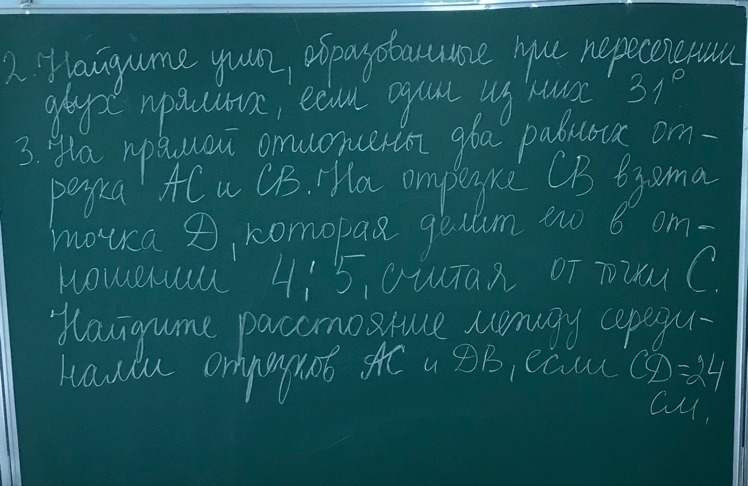 2. Найдите углы, образованные при пересечении
двух прямых, если один из них 31°
3. На прямой отложены два равных от-
резка АС и СВ. На отрезке СВ взята
точка D, которая делит его в от-
ношении 4:5, считая от точки С.
Найдите расстояние между середи-
нами отрезков АС и DB, если CD=24
см.